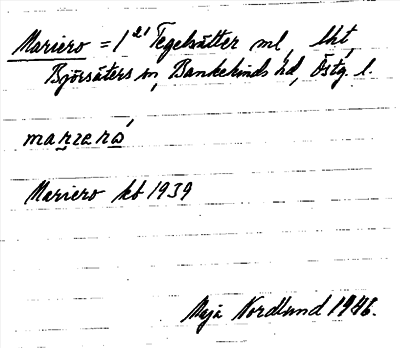 Mariero = 1²¹ Tegelsätter ml, lht,
Björsäters sn, Bankekinds hd, Östg. l.
marıerọ́
Mariero kb 1939
Maja Nordlund 1946.